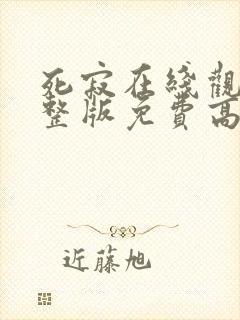 死寂在綫觀
整版免費高
近藤旭